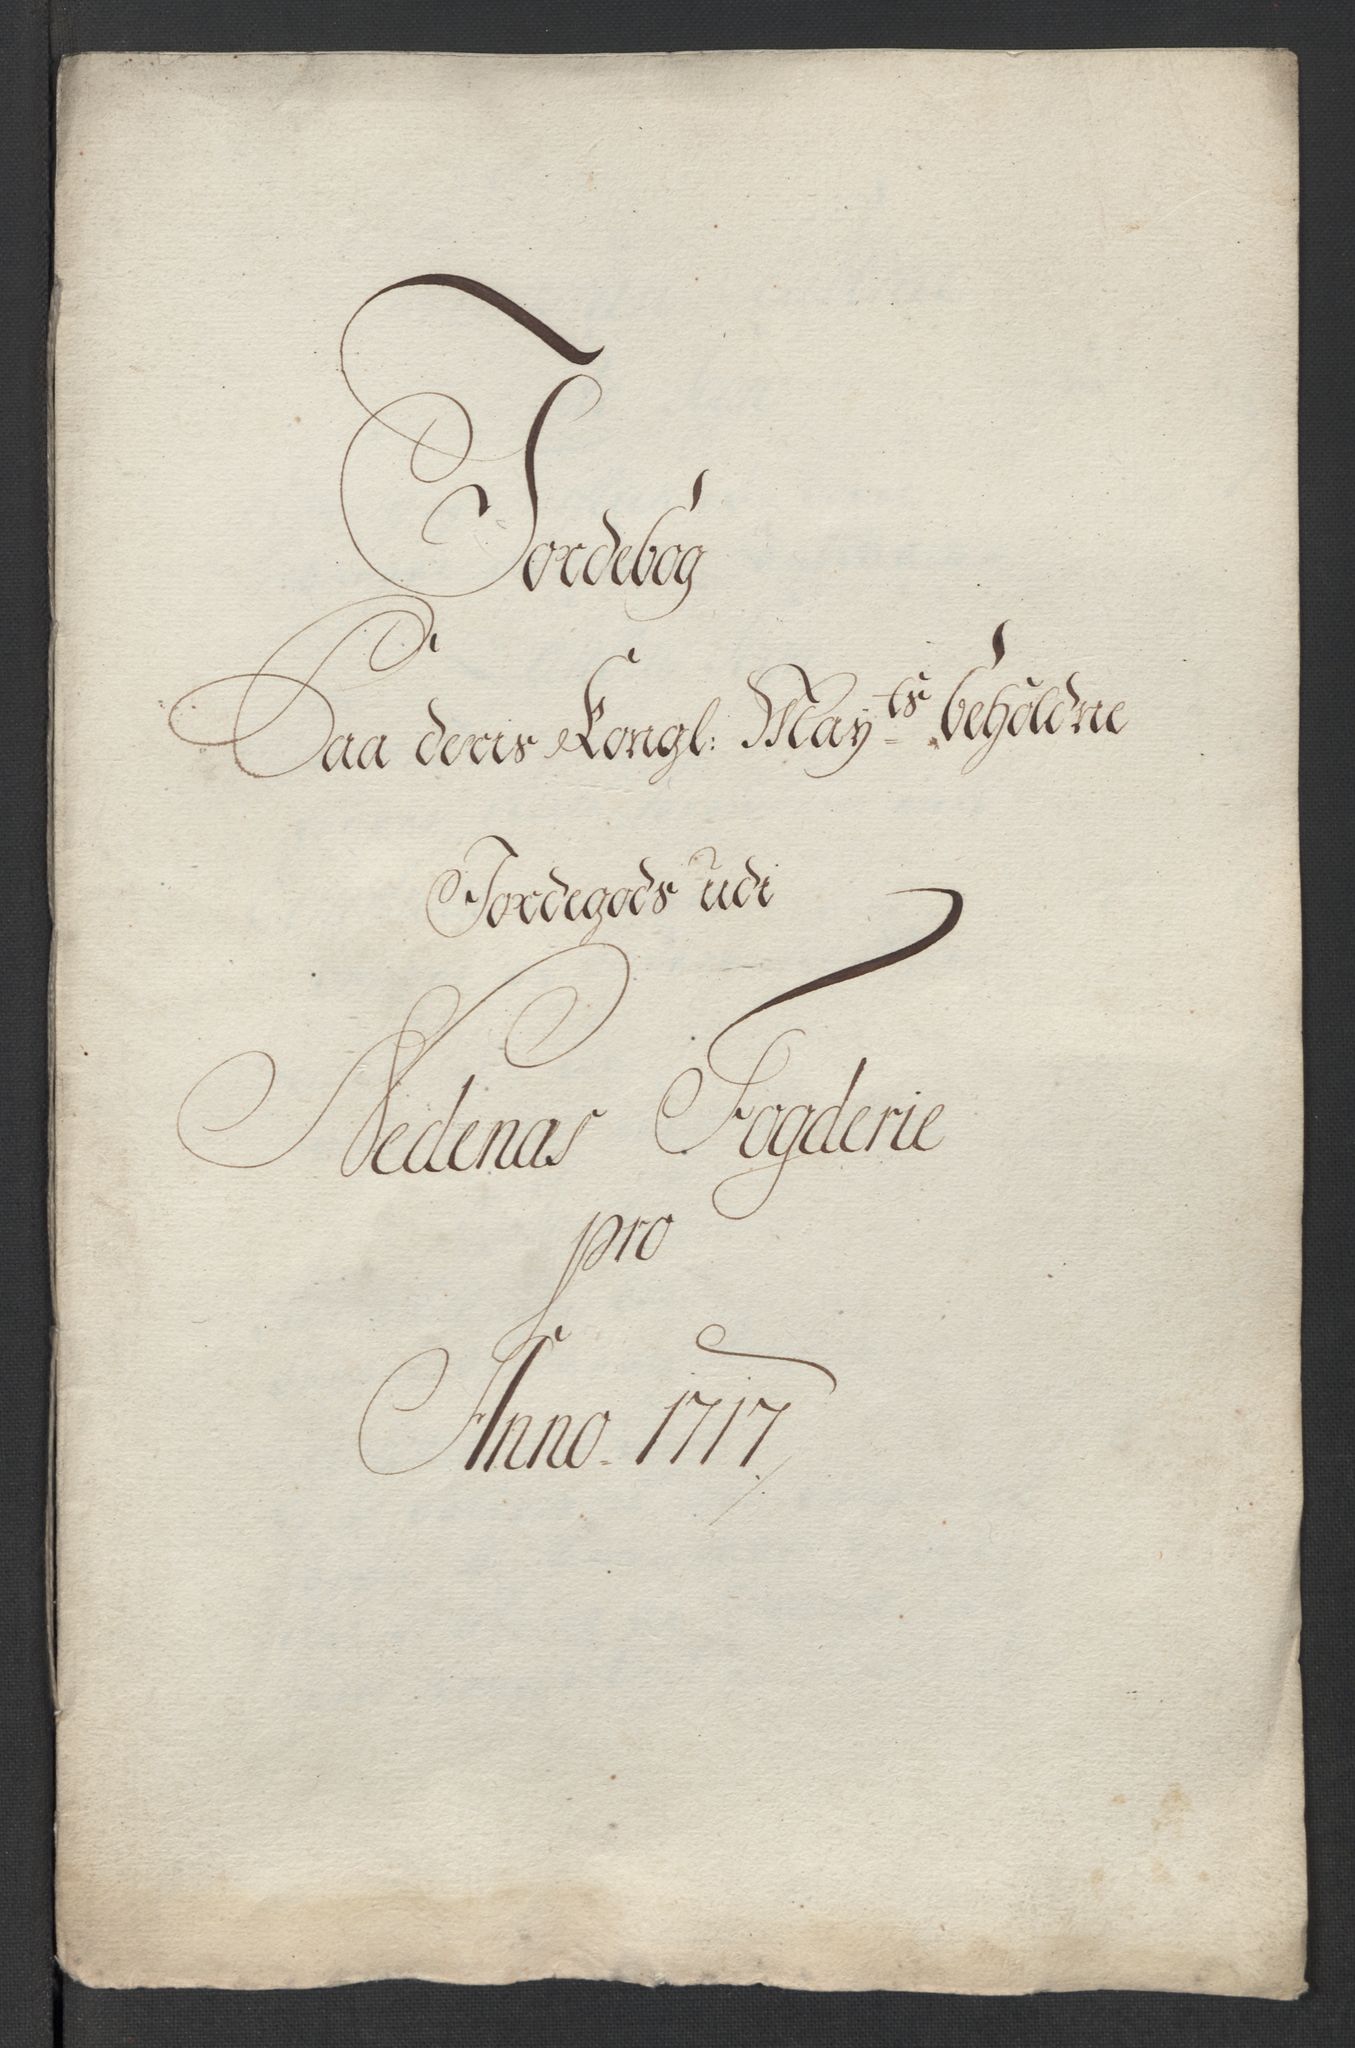 Jordebog
Paa deris Kongl: May<sup>ts</sup> beholdne
Jordegods udi
Nedenas Fogderie
pro
Anno 1717